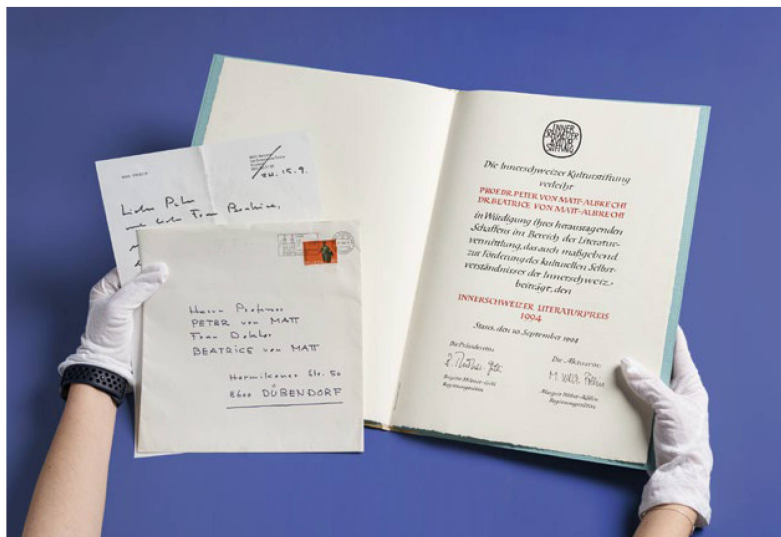 zH. 15.9.
Liebe Peter
und liebe Frau Beatrice,
Herrn Professor
PETER von MATT
Frau Doktor
BEATRICE von MATT
Hermikoner Str. 50
8600 DÜBENDORF
INNER
SCHWEIZER
KULTUR
STIFTUNG
Die Innerschweizer Kulturstiftung
verleiht
PROF.DR. PETER VON MATT-ALBRECHT
DR. BEATRICE VON MATT-ALBRECHT
in Würdigung ihres herausragenden
Schaffens im Bereich der Literatur-
vermittlung, das auch maßgebend
zur Förderung des kulturellen Selbst-
verständnisses der Innerschweiz
beiträgt, den
INNERSCHWEIZER LITERATURPREIS
1994
Stans, den 10. September 1994
Die Präsidentin:
Brigitte Mürner-Gilli
Regierungsrätin
Die Aktuarin:
Regierungsrätin